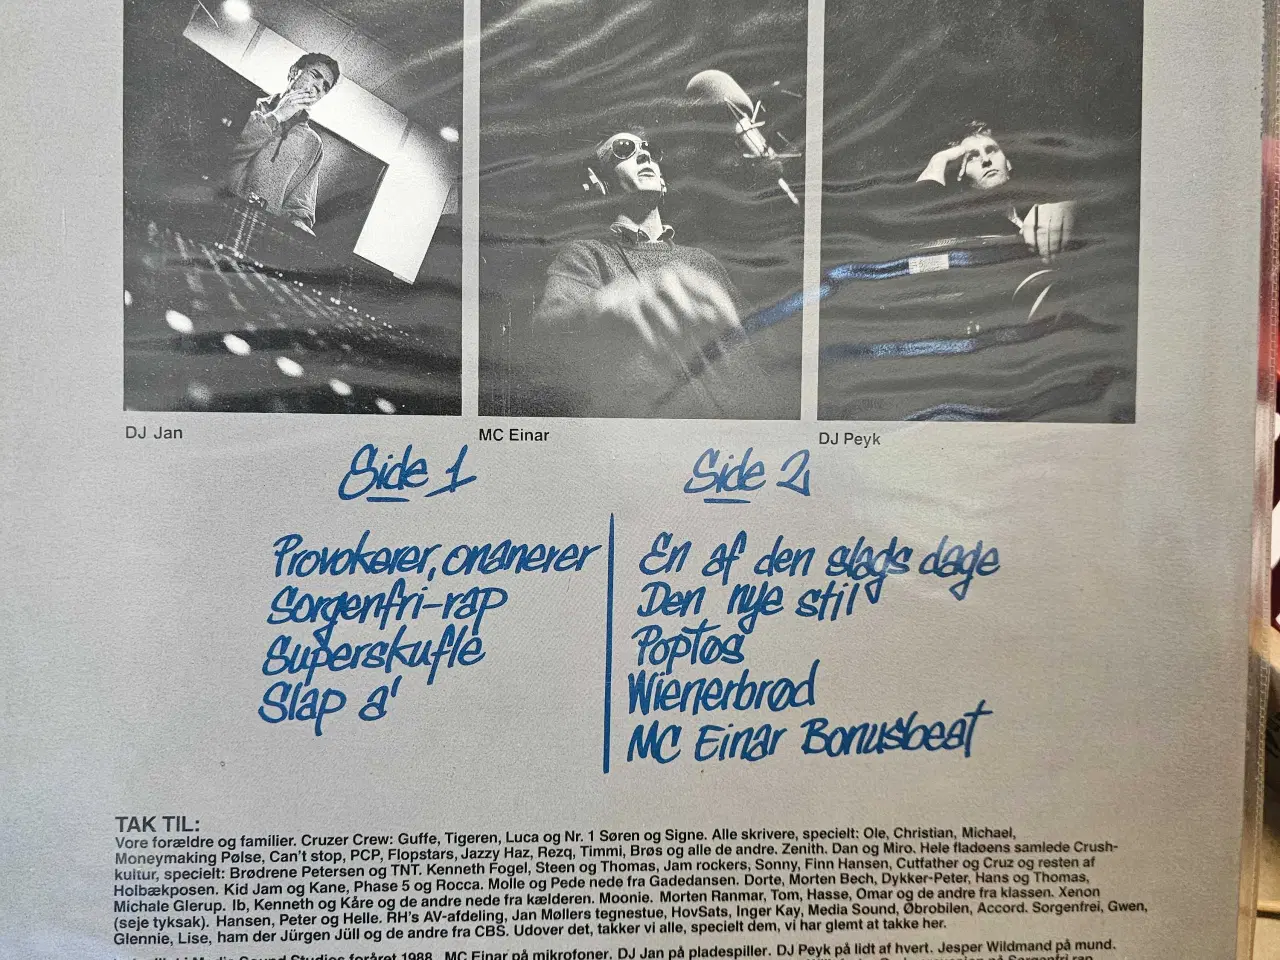 DJ Jan
MC Einar
DJ Peyk
Side 1
Provokerer, onanerer
Sorgenfri-rap
Superskufle
Slap a'
Side 2
En af den slags dage
Den nye stil
Poptøs
Wienerbrød
MC Einar Bonusbeat
TAK TIL:
Vore forældre og familier. Cruzer Crew: Guffe, Tigeren, Luca og Nr. 1 Søren og Signe. Alle skrivere, specielt: Ole, Christian, Michael,
Moneymaking Pølse, Can't stop, PCP, Flopstars, Jazzy Haz, Rezq, Timmi, Brøs og alle de andre. Zenith. Dan og Miro. Hele fladøens samlede Crush-
kultur, specielt: Brødrene Petersen og TNT. Kenneth Fogel, Steen og Thomas, Jam rockers, Sonny, Finn Hansen, Cutfather og Cruz og resten af
Holbækposen. Kid Jam og Kane, Phase 5 og Rocca. Molle og Pede nede fra Gadedansen. Dorte, Morten Bech, Dykker-Peter, Hans og Thomas,
Michale Glerup. Ib, Kenneth og Kåre og de andre nede fra kælderen. Moonie. Morten Ranmar, Tom, Hasse, Omar og de andre fra klassen. Xenon
(seje tyksak). Hansen, Peter og Helle. RH's AV-afdeling, Jan Møllers tegnestue, HovSats, Inger Kay, Media Sound, Øbrobilen, Accord. Sorgenfrei, Gwen,
Glennie, Lise, ham der Jürgen Jüll og de andre fra CBS. Udover det, takker vi alle, specielt dem, vi har glemt at takke her.
Media Sound Studios foråret 1988. MC Einar på mikrofoner. DJ Jan på pladespiller. DJ Peyk på lidt af hvert. Jesper Wildmand på mund.